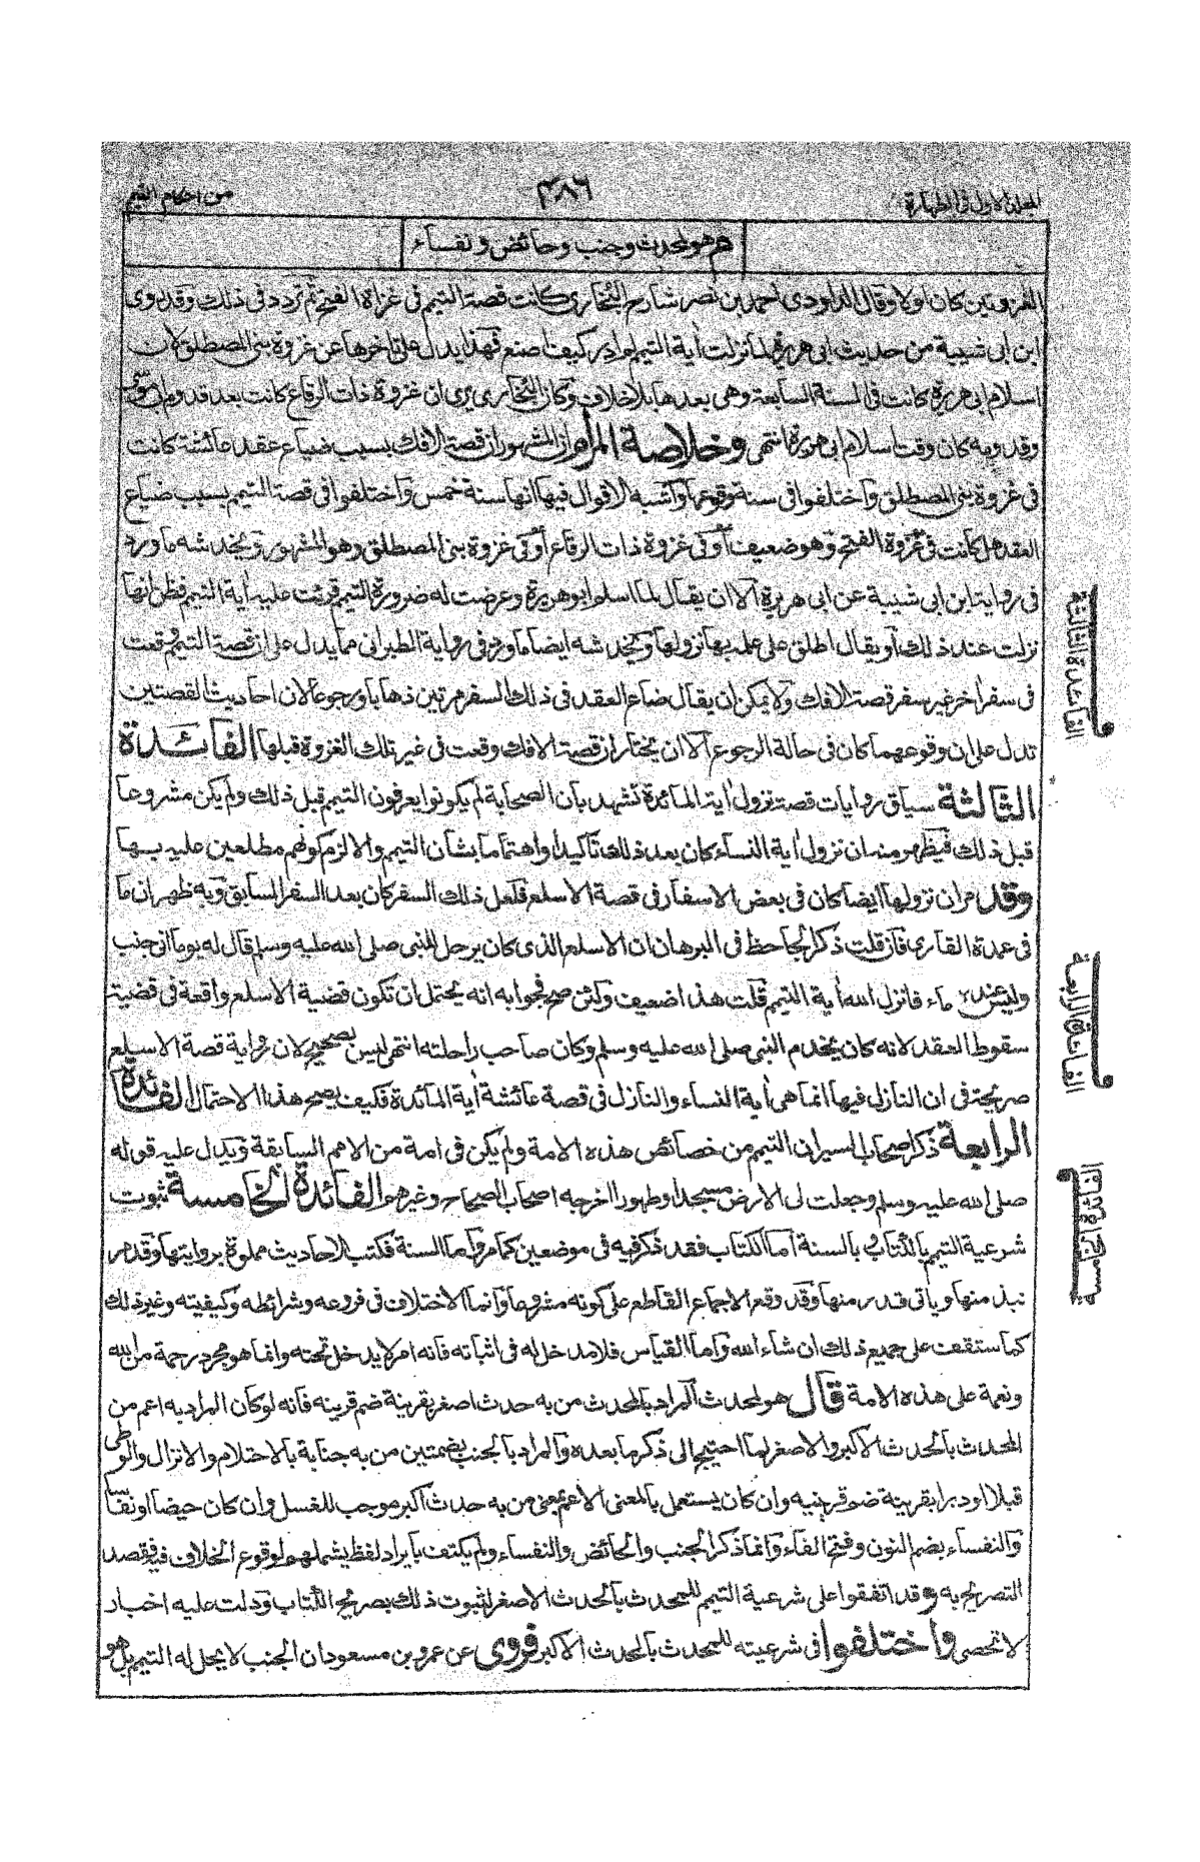 المجلد الاول فى الطهارة
٤٨٦
من احكام التيمم
هو لمحدث وجنب وحائض ونفساء
الغزوتين كان اولا وقال الداودى احمد بن نصر شارح البخارى كانت قصة التيمم فى غزاة الفتح ثم تردد فى ذلك وقد روى
ابن ابى شيبة من حديث ابى هريرة لما نزلت اية التيمم لم ادر كيف اصنع فهذا يدل على تاخرها عن غزوة بنى المصطلق لان
اسلام ابى هريرة كانت فى السنة السابعة وهى بعدها بلا خلاف وكان البخارى يرى ان غزوة ذات الرقاع كانت بعد قدوم ابى موسى
وقدومه كان وقت اسلام ابى هريرة انتهى وخلاصة المرام ان المشهور ان قصة الافك بسبب ضياع عقد عائشة كانت
فى غزوة بنى المصطلق واختلفوا فى سنة وقوعها واشبه الاقوال فيها انها سنة خمس واختلفوا فى قصة التيمم بسبب ضياع
العقد هل كانت فى غزوة الفتح وهو ضعيف او فى غزوة ذات الرقاع او فى غزوة بنى المصطلق وهو المشهور ويخدشه ما ورد
فى رواية ابن ابى شيبة عن ابى هريرة الا ان يقال لما اسلم ابو هريرة وعرضت له ضرورة التيمم قرئت عليه اية التيمم فظن انها
نزلت عند ذلك او يقال اطلق على علمه بها نزولها ويخدشه ايضا ما ورد فى رواية الطبرانى مما يدل على ان قصة التيمم وقعت
فى سفر اخر غير سفر قصة الافك ولا يمكن ان يقال ضاع العقد فى ذلك السفر مرتين ذهابا ورجوعا لان احاديث القصتين
تدل على ان وقوعهما كان فى حالة الرجوع الا ان يختار ان قصة الافك وقعت فى غير تلك الغزوة قبلها الفائدة
الثالثة سياق روايات قصة نزول اية المائدة تشهد بان الصحابة لم يكونوا يعرفون التيمم قبل ذلك ولم يكن مشروعا
قبل ذلك فيظهر منه ان نزول اية النساء كان بعد ذلك تاكيدا واهتماما بشان التيمم والا لزم كونهم مطلعين عليه بها
وقد مر ان نزولها ايضا كان فى بعض الاسفار فى قصة الاسلع فلعل ذلك السفر كان بعد السفر السابق وبه ظهر ان ما
فى عمدة القارى فان قلت ذكر الجاحظ فى البرهان ان الاسلع الذى كان يرحل للنبى صلى الله عليه وسلم قال له يوما انى جنب
وليس عندى ماء فانزل الله اية التيمم قلت هذا ضعيف ولئن صح فجوابه انه يحتمل ان تكون قضية الاسلع واقعة فى قضية
سقوط العقد لانه كان يخدم النبى صلى الله عليه وسلم وكان صاحب راحلته انتهى ليس بصحيح لان رواية قصة الاسلع
صريحة فى ان النازل فيها انما هى اية النساء والنازل فى قصة عائشة اية المائدة فكيف يصح هذا الاحتمال الفائدة
الرابعة ذكر اصحاب السير ان التيمم من خصائص هذه الامة ولم يكن فى امة من الامم السابقة ويدل عليه قوله
صلى الله عليه وسلم وجعلت لى الارض مسجدا وطهورا اخرجه اصحاب الصحاح وغيرهم الفائدة الخامسة ثبوت
شرعية التيمم بالكتاب بالسنة اما الكتاب فقد ذكر فيه فى موضعين كما مر واما السنة فكتب الاحاديث مملوة بروايتها وقد مر
نبذ منها وياتى قدر منها وقد وقع الاجماع القاطع على كونه مشروعا وانما الاختلاف فى فروعه وشرائطه وكيفيته وغير ذلك
كما ستقف على جميع ذلك ان شاء الله واما القياس فلا مدخل له فى اثباته فانه امر لا يدخل تحته وانما هو مجرد رحمة من الله
ونعمة على هذه الامة قال هو لمحدث المراد بالمحدث من به حدث اصغر بقرينة ضم قرينه فانه لو كان المراد به اعم من
المحدث بالحدث الاكبر والاصغر لما احتيج الى ذكر ما بعده والمراد بالجنب بضمتين من به جنابة بالاحتلام والانزال والوطى
قبلا او دبرا بقرينة ضم قرينيه وان كان يستعمل بالمعنى الاعم بمعنى من به حدث اكبر موجب للغسل وان كان حيضا او نفاسا
والنفساء بضم النون وفتح الفاء وانما ذكر الجنب والحائض والنفساء ولم يكتف بايراد لفظ يشملهم لوقوع الخلاف فيه فقصد
التصريح به وقد اتفقوا على شرعية التيمم للمحدث بالحدث الاصغر لثبوت ذلك بصريح الكتاب ودلت عليه اخبار
لا تحصى واختلفوا فى شرعيته للمحدث بالحدث الاكبر فروى عن عمر وبن مسعود ان الجنب لا يحل له التيمم بل هو
الفائدة الثالثة
الفائدة الرابعة
الفائدة الخامسة